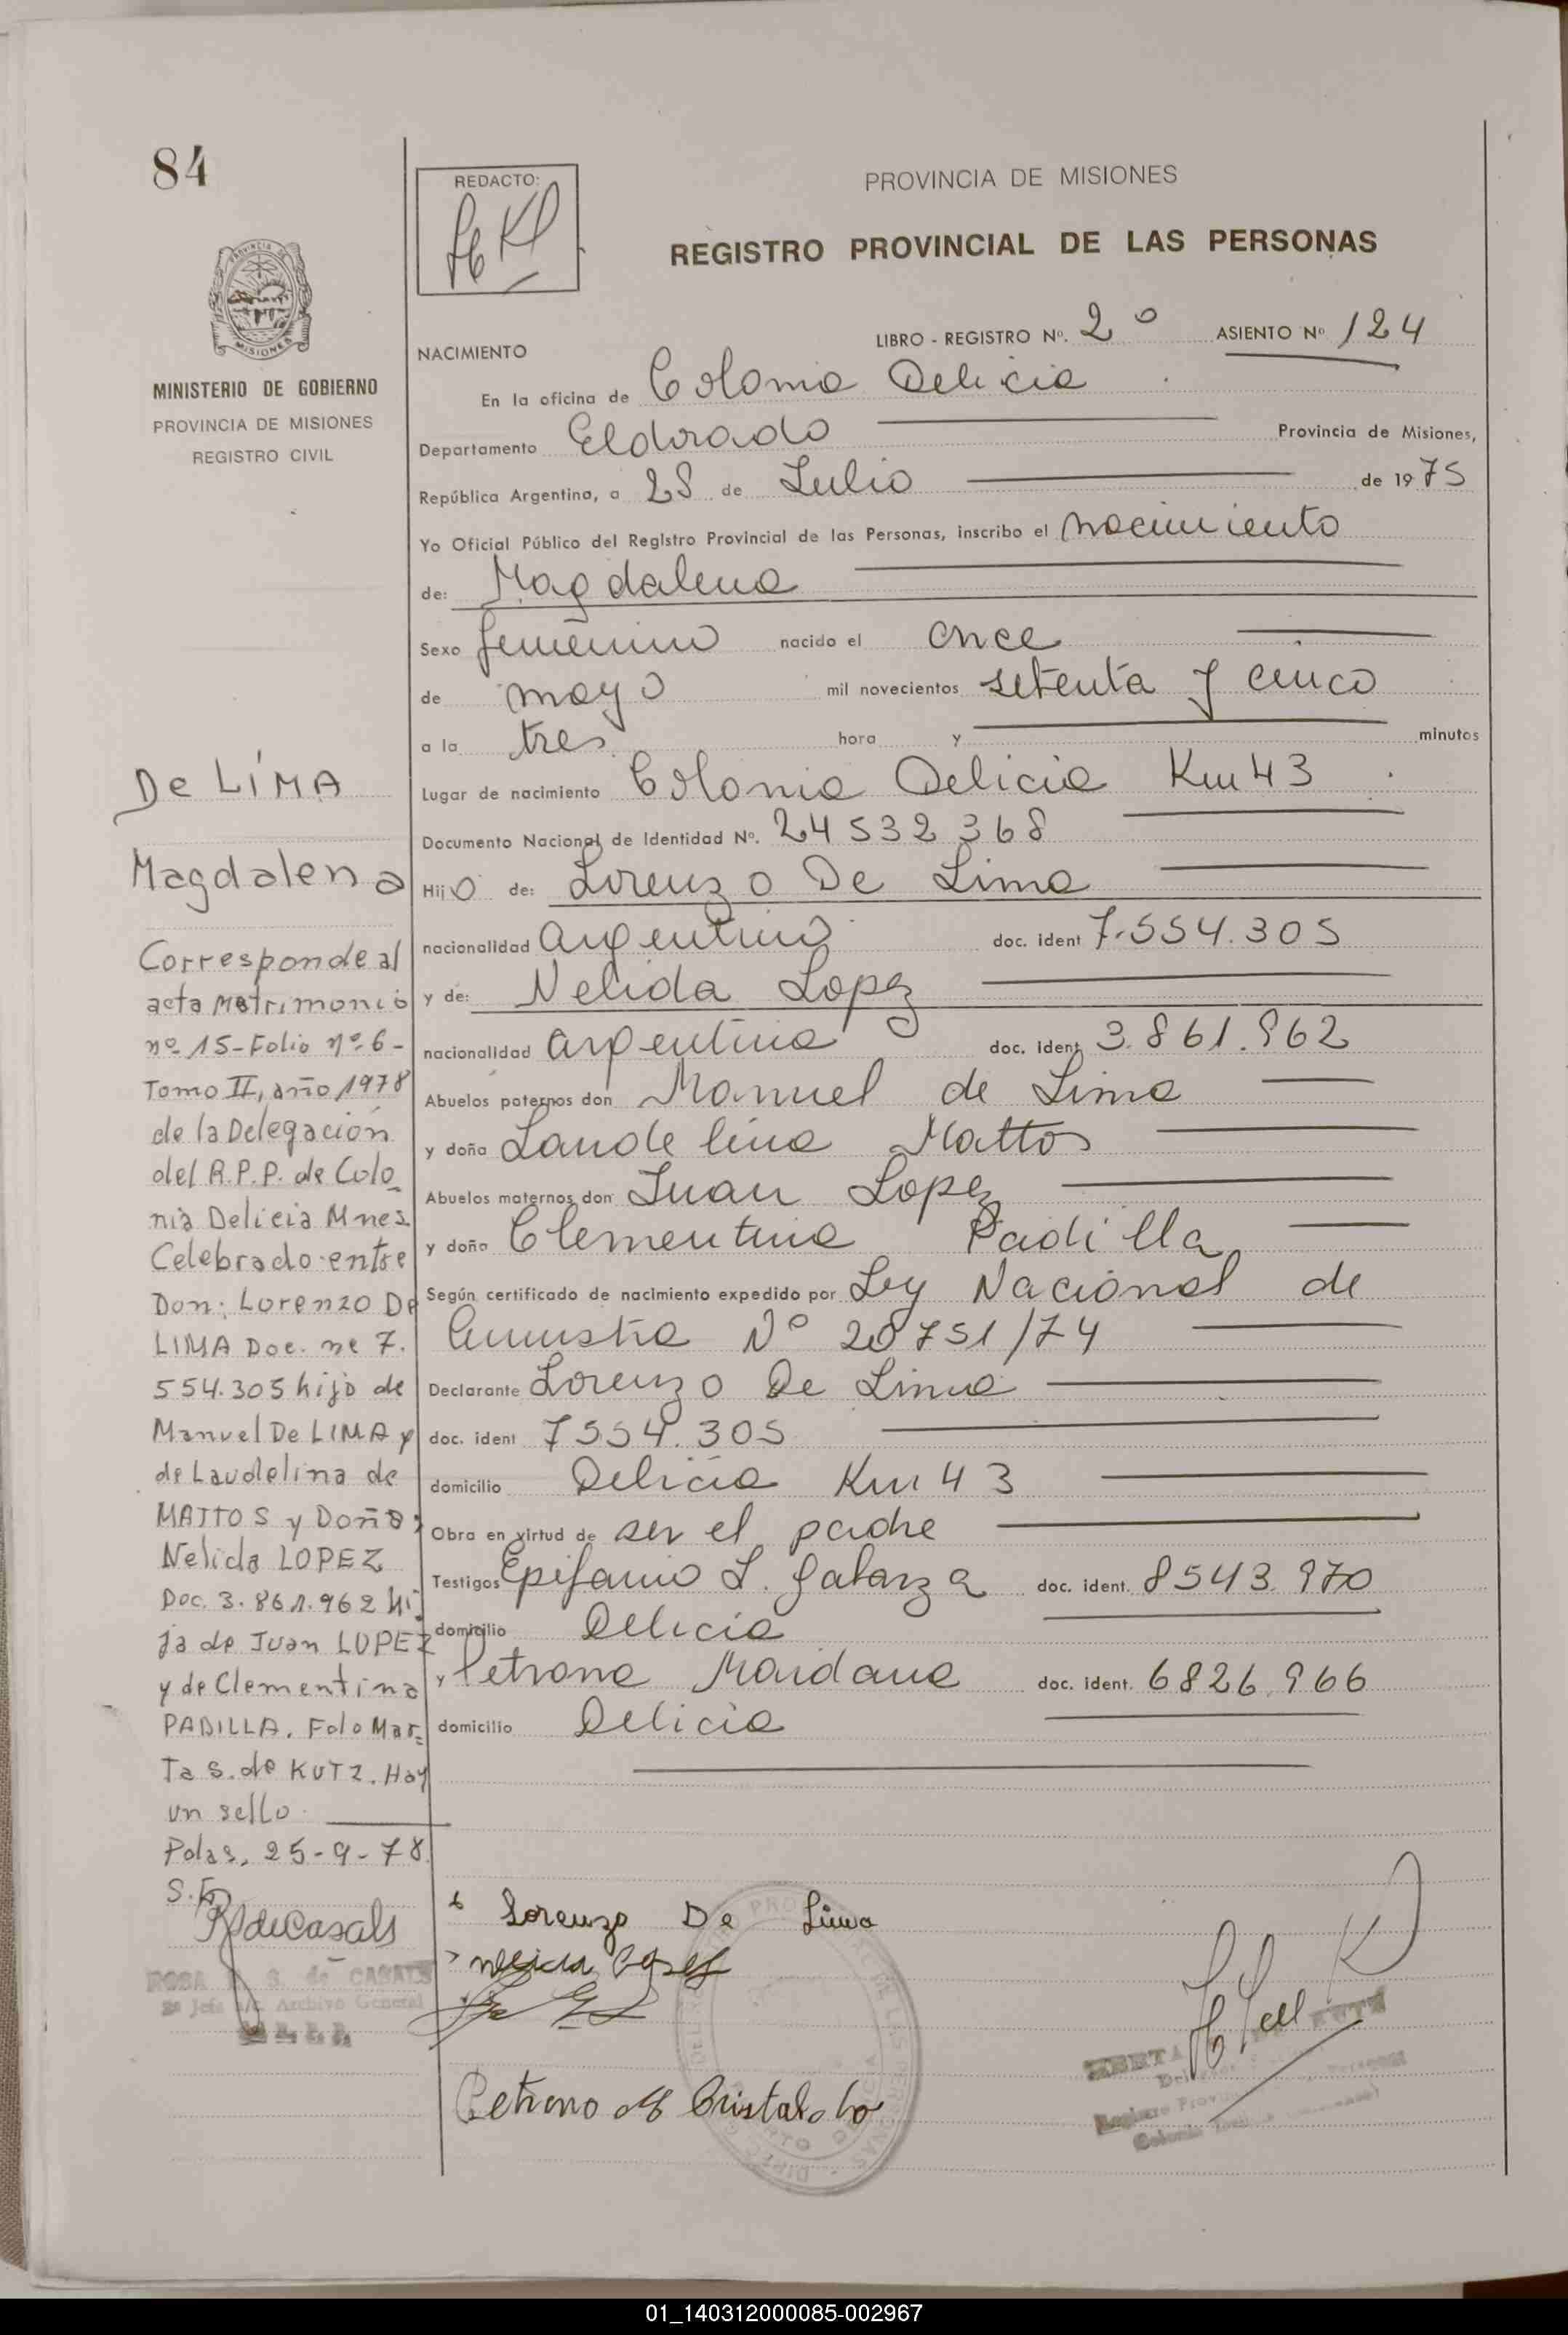 84
MINISTERIO DE GOBIERNO
PROVINCIA DE MISIONES
REGISTRO CIVIL
De LíMA
Magdalena
Corresponde al
acta Matrimonio
nº 15-Folio nº 6-
Tomo II, año 1978
de la Delegación
del R.P.P. de Colo_
nia Delicia Mnes.
Celebrado entre
Don: Lorenzo De
LIMA Doc. nº 7.
554.305 hijo de
Manuel De LIMA y
de Laudelina de
MATTOS y Doña;
Nelida LOPEZ
Doc. 3.861.962 hi
ja de Juan LOPEZ
y de Clementina
PADILLA. Fdo Mar=
Ta S. de KUTZ. Hay
un sello
Pdas, 25-9-78.
R de Casals
ROSA S. de CASALS
2ª Jefa a/c. Archivo General
REDACTO:
PROVINCIA DE MISIONES
REGISTRO PROVINCIAL DE LAS PERSONAS
LIBRO - REGISTRO Nº. 2º ASIENTO Nº 124
NACIMIENTO
En la oficina de Colonia Delicia
Departamento Eldorado Provincia de Misiones,
República Argentina, a 28 de Julio de 1975
Yo Oficial Público del Registro Provincial de las Personas, inscribo el nacimiento
de: Magdalena
Sexo femenino nacido el once
de mayo mil novecientos setenta y cinco
a la tres hora y minutos
Lugar de nacimiento Colonia Delicia Km 43
Documento Nacional de Identidad Nº. 24532368
Hijo de: Lorenzo De Lima
nacionalidad argentino doc. ident 7.554.305
y de: Nelida Lopez
nacionalidad argentina doc. ident. 3.861.962
Abuelos paternos don Manuel de Lima
y doña Laudelina Mattos
Abuelos maternos don Juan Lopez
y doña Clementina Padilla
Según certificado de nacimiento expedido por Ley Nacional de
Amnistia Nº 20751/74
Declarante Lorenzo De Lima
doc. ident 7554.305
domicilio Delicia Km 43
Obra en virtud de ser el padre
Testigos Epifanio L. Galarza doc. ident. 8543.970
domicilio Delicia
y Petrona Maidana doc. ident. 6826.966
domicilio Delicia
Lorenzo De Lima
Petrono
01_140312000085-002967